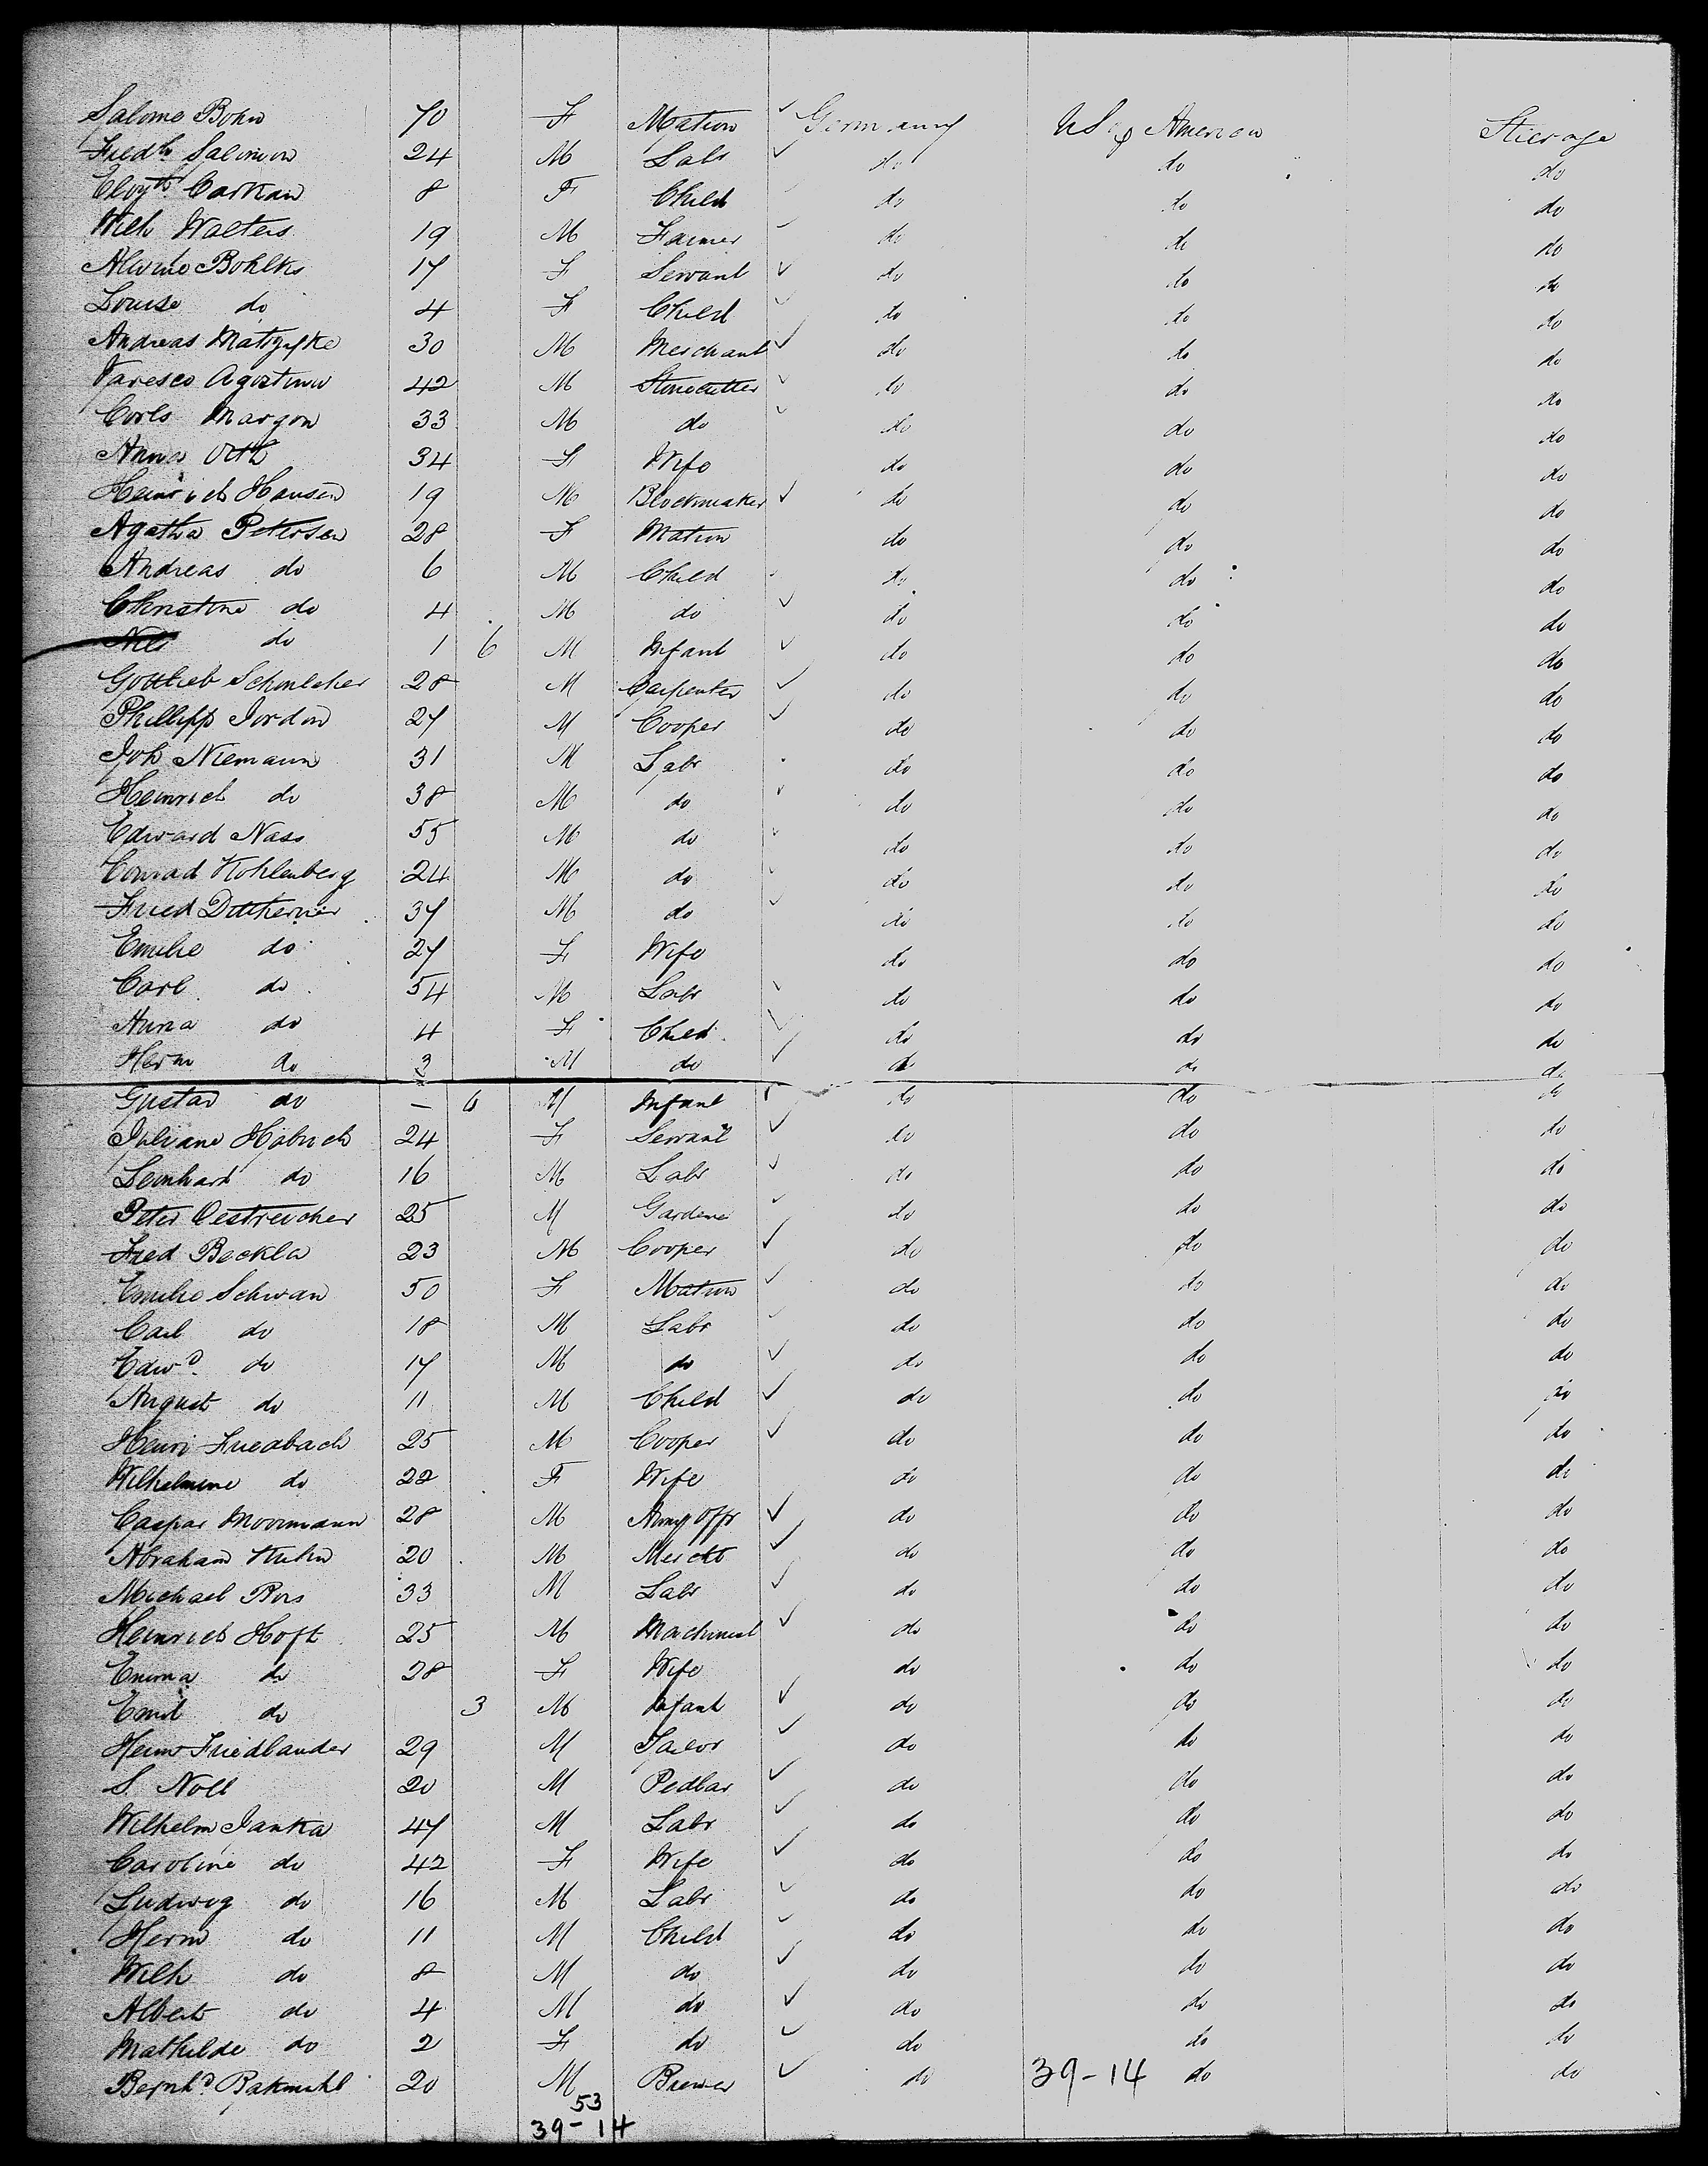 Salome Bohn 70 F Matron Germany US of America Steerage
Fredk Salomon 24 M Labr do do do
Elizth Carkan 8 F Child do do do
Wilh Walters 19 M Farmer do do do
Alwine Bohlks 17 F Servant do do do
Louise do 4 F Child do do do
Andreas 30 M Merchant do do do
Agostino 42 M Stonecutter do do do
Carlo Margon 33 M do do do do
Anna Orth 34 F Wife do do do
Heinrich Hansen 19 M Blockmaker do do do
Agatha Petersen 28 F Matron do do do
Andreas do 6 M Child do do do
Christine do 4 M do do do do
Nils do 1 6 M Infant do do do
Gottlieb Schmlcher 28 M Carpenter do do do
Phillipp Jordon 27 M Cooper do do do
Joh Niemann 31 M Labr do do do
Heinrich do 38 M do do do do
Edward Nass 55 M do do do do
Conrad Kohlenberg 24 M do do do do
Fried 37 M do do do do
Emilie do 27 F Wife do do do
Carl do 54 M Labr do do do
Anna do 4 F Child do do do
Herm do 3 M do do do do
Gustav do — 6 M Infant do do do
Juliane Habrich 24 F Servant do do do
Leonhard do 16 M Labr do do do
Peter Oestreicher 25 M Gardener do do do
Fred Beckla 23 M Cooper do do do
Emilie Schwan 50 F Matron do do do
Carl do 18 M Labr do do do
Edwd do 17 M do do do do
August do 11 M Child do do do
Henri Friedbach 25 M Cooper do do do
Wilhelmine do 22 F Wife do do do
Caspar Moormann 28 M Army Offr do do do
Abraham Kuhn 20 M Mercht do do do
Michael Ross 33 M Labr do do do
Heinrich Hoft 25 M Machinist do do do
Emma do 28 F Wife do do do
Emil do 3 M Infant do do do
Heinr Friedlander 29 M Tailor do do do
S. Noll 20 M Pedlar do do do
Wilhelm Janka 47 M Labr do do do
Caroline do 42 F Wife do do do
Ludwig do 16 M Labr do do do
Herm do 11 M Child do do do
Wilh do 8 M do do do do
Albert do 4 M do do do do
Mathilde do 2 F do do do do
Bernhd 20 M Brewer do 39-14 do do
53
39-14